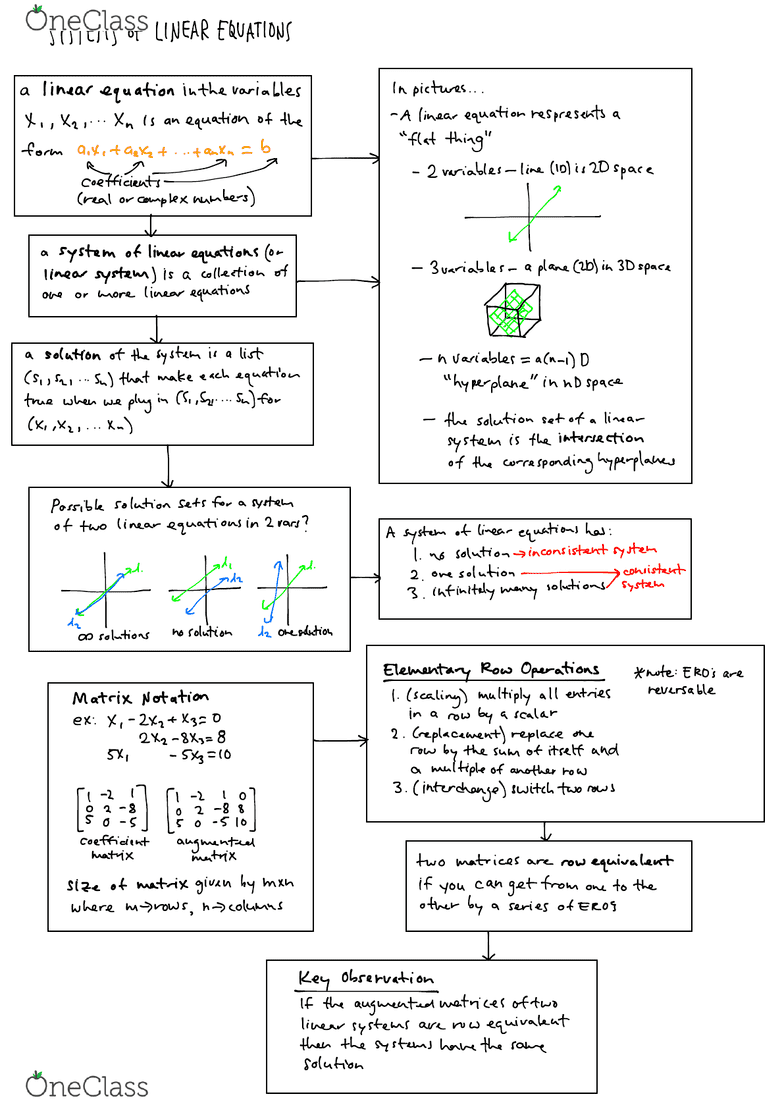 OneClass
of LINEAR EQUATIONS
a linear equation in the variables
x₁, x₂, ... xₙ is an equation of the
form a₁x₁ + a₂x₂ + ... + aₙxₙ = b
coefficients
(real or complex numbers)
a system of linear equations (or
linear system) is a collection of
one or more linear equations
a solution of the system is a list
(s₁, s₂, ... sₙ) that make each equation
true when we plug in (s₁, s₂, ... sₙ) for
(x₁, x₂, ... xₙ)
In pictures...
- A linear equation respresents a
"flat thing"
- 2 variables - line (1D) is 2D space
- 3 variables - a plane (2D) in 3D space
- n variables = a (n-1) D
"hyperplane" in nD space
- the solution set of a linear
system is the intersection
of the corresponding hyperplanes
Possible solution sets for a system
of two linear equations in 2 vars?
l₁ l₁ l₂ l₁
l₂ l₂
∞ solutions no solution one solution
A system of linear equations has:
1. no solution → inconsistent system
2. one solution → consistent
3. infinitely many solutions system
Matrix Notation
ex: x₁ - 2x₂ + x₃ = 0
2x₂ - 8x₃ = 8
5x₁ - 5x₃ = 10
[1 -2 1] [1 -2 1 0]
[0 2 -8] [0 2 -8 8]
[5 0 -5] [5 0 -5 10]
coefficient augmented
matrix matrix
size of matrix given by m×n
where m→rows, n→columns
Elementary Row Operations
*note: ERO's are
reversable
1. (scaling) multiply all entries
in a row by a scalar
2. (replacement) replace one
row by the sum of itself and
a multiple of another row
3. (interchange) switch two rows
two matrices are row equivalent
if you can get from one to the
other by a series of EROs
Key Observation
If the augmented matrices of two
linear systems are row equivalent
then the systems have the same
solution
OneClass